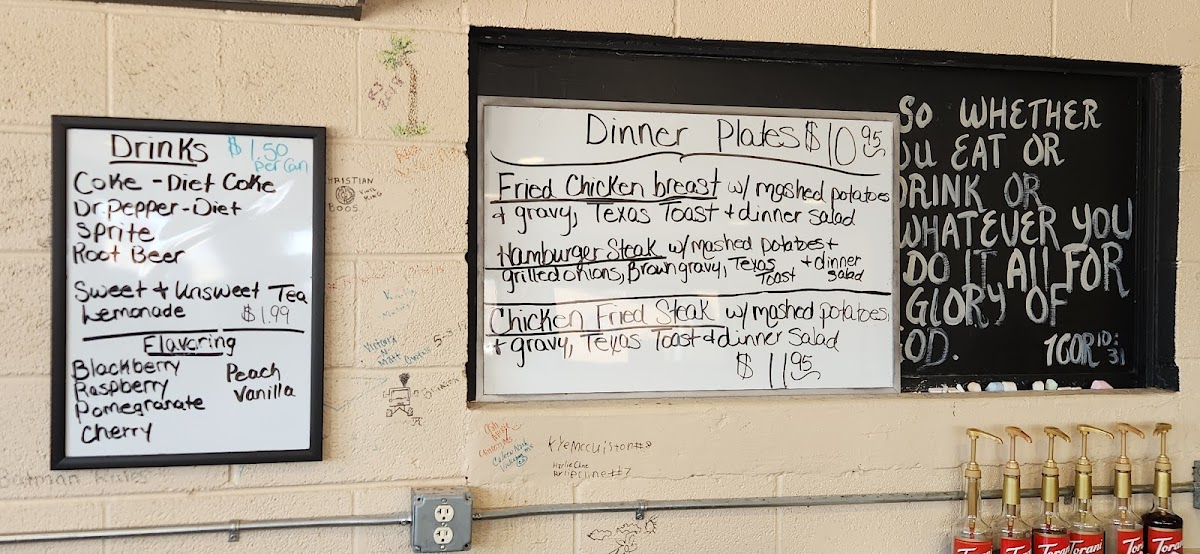 Drinks $1.50
per can
Coke - Diet Coke
Dr. Pepper - Diet
Sprite
Root Beer
Sweet + Unsweet Tea
Lemonade $1.99
Flavoring
Blackberry
Raspberry
Pomegranate
Cherry
Peach
Vanilla
RJ
2018
CHRISTIAN
BOOS
Dinner Plates $10.95
Fried Chicken breast w/ mashed potatoes
+ gravy, Texas Toast + dinner salad
Hamburger Steak w/ mashed potatoes +
grilled onions, Brown gravy, Texas Toast + dinner salad
Chicken Fried Steak w/ mashed potatoes,
+ gravy, Texas Toast + dinner salad
$11.95
SO WHETHER
OU EAT OR
DRINK OR
WHATEVER YOU
DO IT All FOR
GLORY OF
OD. 1COR 10:31
Batman Rules
Torani
Torani